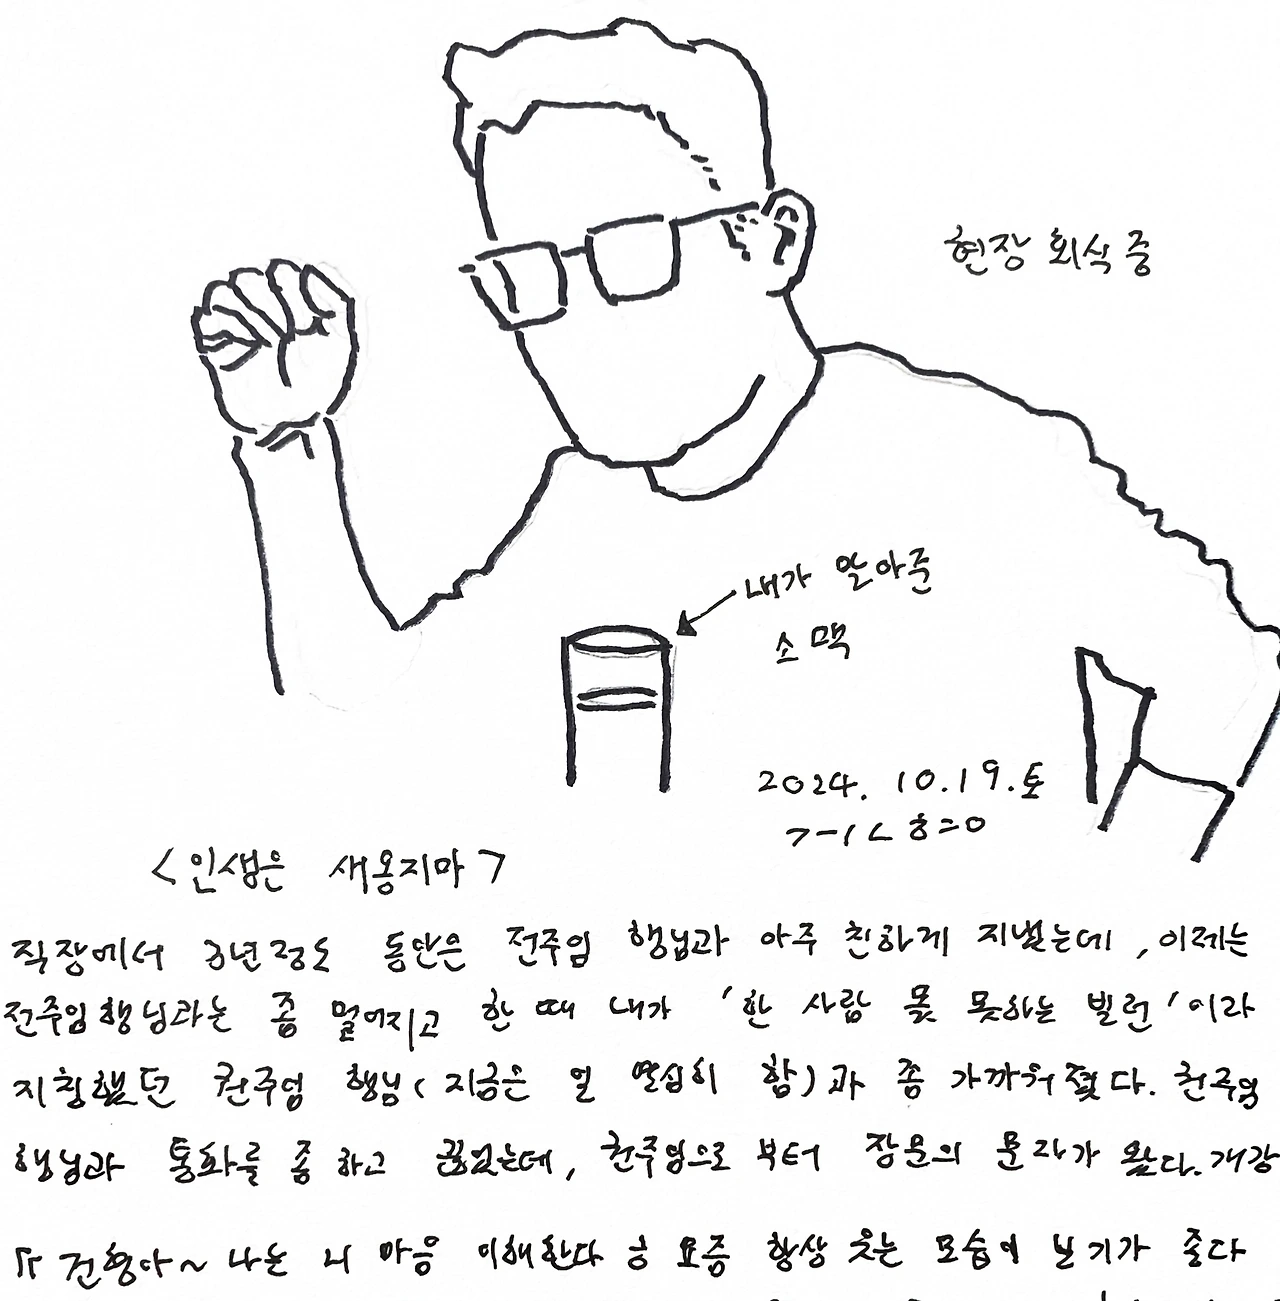 현장 회식 중
내가 말아준
소맥
2024. 10.19.토
<인생은 새옹지마>
직장에서 3년정도 동안은 전주임 행님과 아주 친하게 지냈는데, 이제는
전주임행님과는 좀 멀어지고 한 때 내가 '한 사람 몫 못하는 빌런'이라
지칭했던 권주임 행님(지금은 일 열심히 함)과 좀 가까워졌다. 권주임
행님과 통화를 좀 하고 끊었는데, 권주임으로 부터 장문의 문자가 왔다. 개강
건형아~ 나는 니 마음 이해한다 ㅎ 요즘 항상 웃는 모습이 보기가 좋다